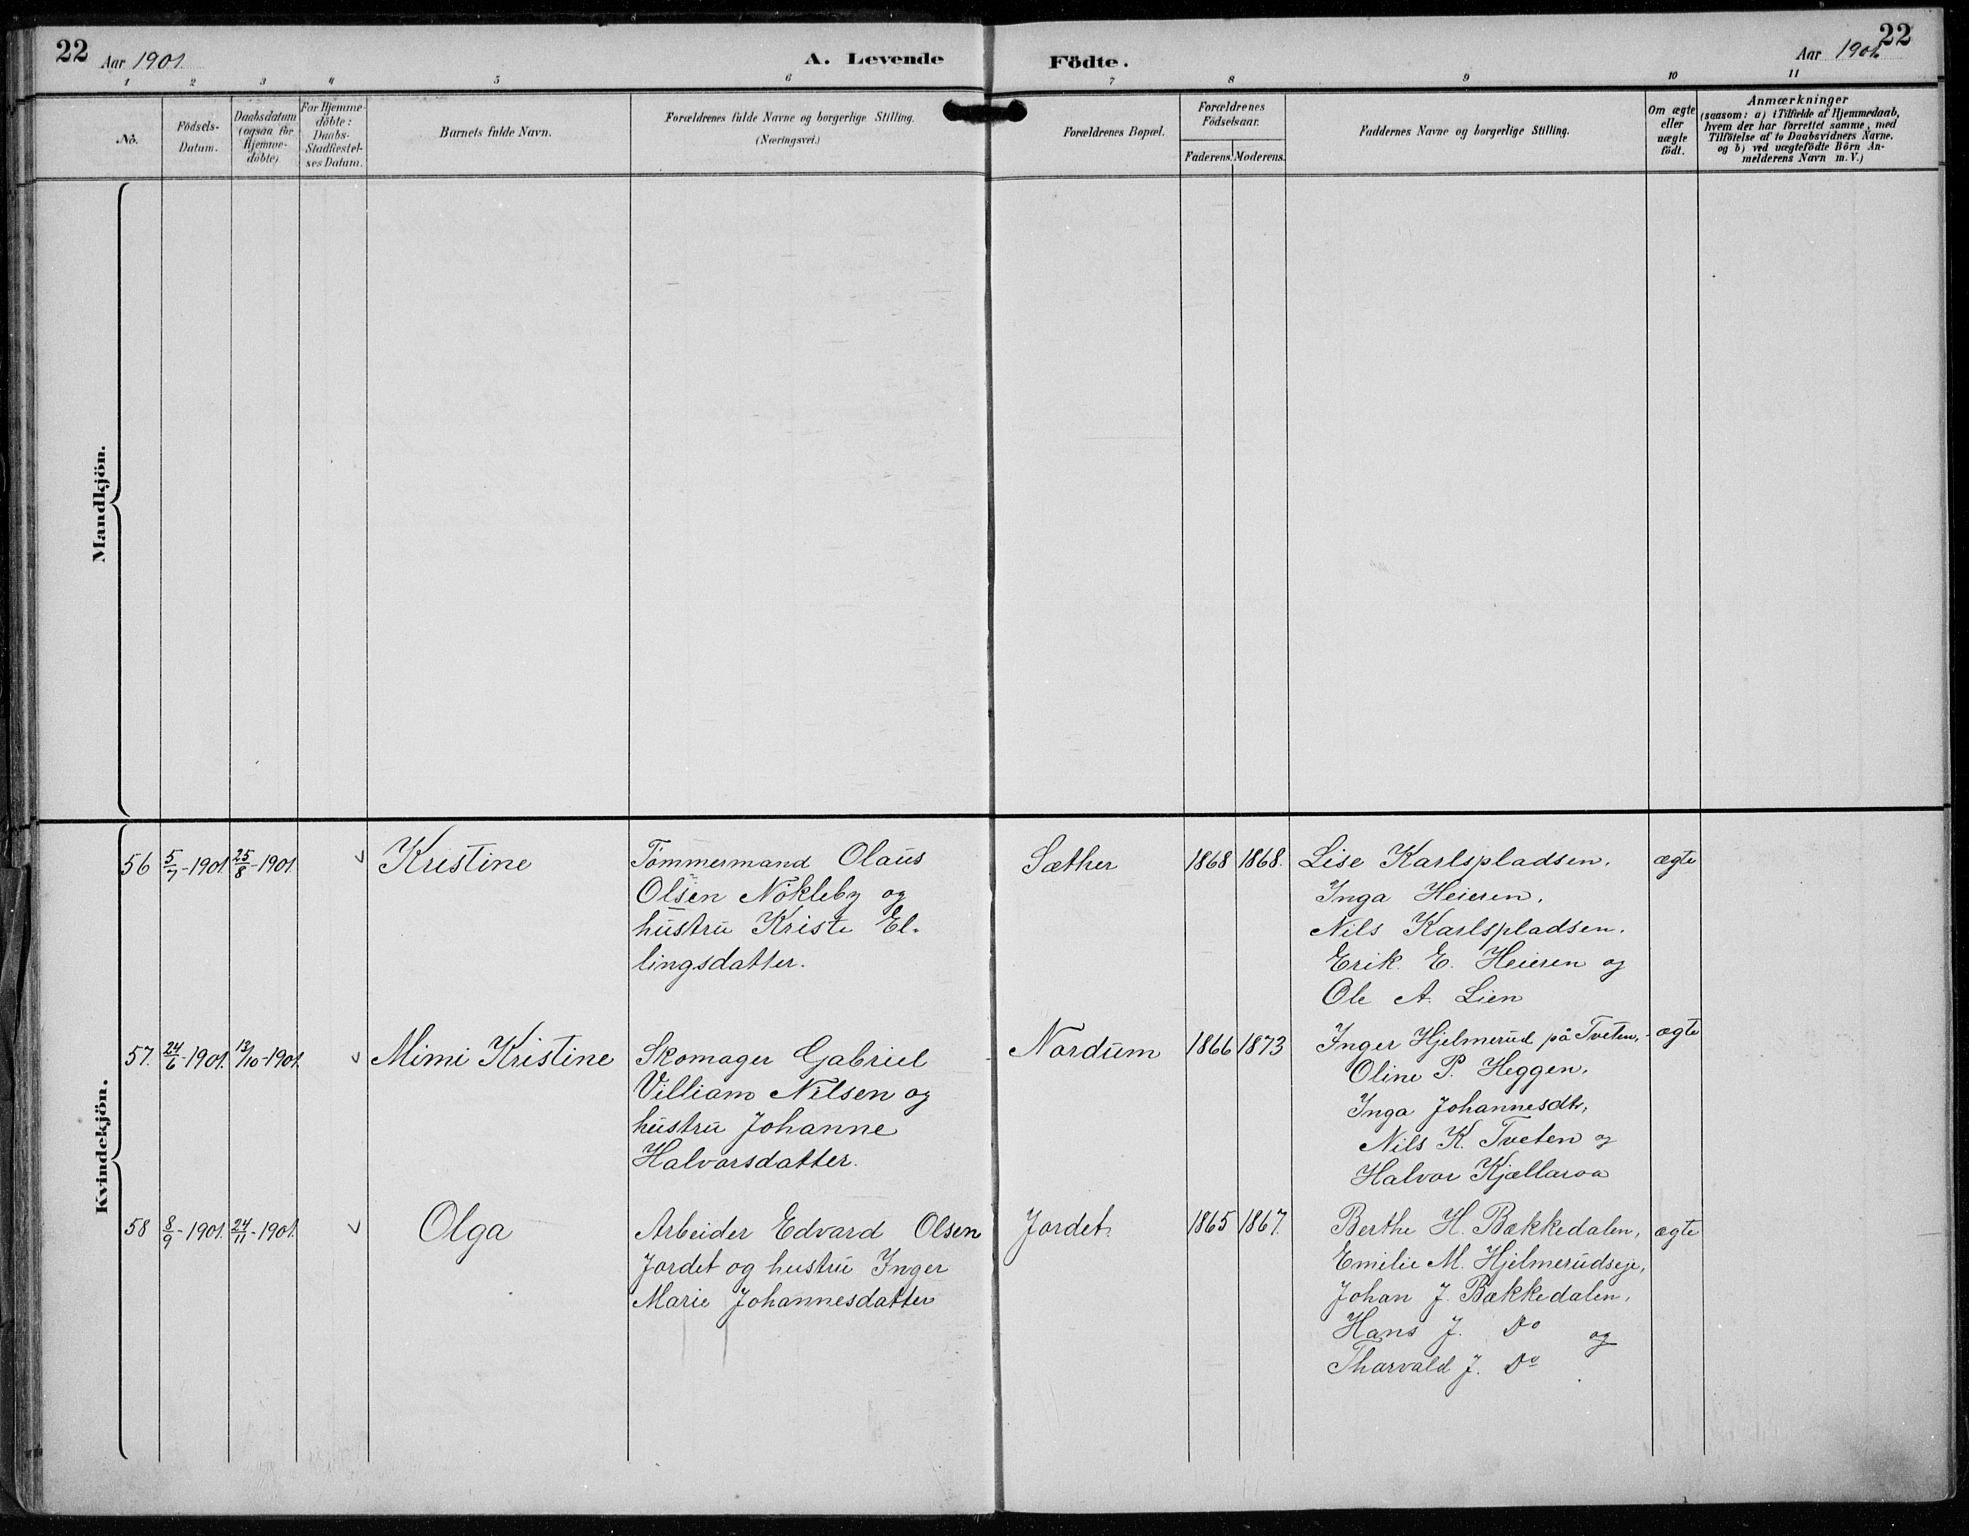 22 Aar 1901. A. Levende Födte. Aar 1901. 22
1 2 3 4 5 6 7 8 9 10 11
No.
Födsels-
Datum.
Daabsdatum
(ogsaa för
Hjemme-
döbte)
For Hjemme-
döbte:
Daabs-
Stadfæstel-
ses Datum.
Barnets fulde Navn.
Forældrenes fulde Navne og borgerlige Stilling.
(Næringsvei.)
Forældrenes Bopæl.
Forældrenes
Födselsaar.
Faderens. Moderens.
Faddernes Navne og borgerlige Stilling.
Om ægte
eller
uægte
födt.
Anmærkninger
(saasom: a) i Tilfælde af Hjemmedaab,
hvem der har forrettet samme, med
Tilföielse af to Daabsvidners Navne.
og b) ved uægtefödte Börn An-
melderens Navn m. V.)
Mandkjön.
Kvindekjön.
56 5/7-1901. 25/8-1901 v Kristine
Tömmermand Olaus
Olsen Nökleby og
hustru Kriste El-
lingsdatter.
Sæther 1868 1868.
Lise Karlspladsen,
Inga Heieren,
Nils Karlspladsen,
Erik E. Heieren og
Ole A. Lien
ægte
57. 24/6-1901. 13/10-1901. v Mimi Kristine
Skomager Gabriel
Villiam Nilsen og
hustru Johanne
Halvorsdatter.
Nordum 1866 1873
Inger Hjelmerud på Tveten,
Oline P. Heggen,
Inga Johannesdtr,
Nils K. Tveten og
Halvor Kjællaroa
ægte
58 8/9-1901. 24/11-1901. v Olga
Arbeider Edvard Olsen
Jordet og hustru Inger
Marie Johannesdatter
Jordet. 1865 1867.
Berthe H. Bækkedalen,
Emilie M. Hjelmerudseje,
Johan J. Bækkedalen,
Hans J. Do og
Tharvald J. Do
ægte